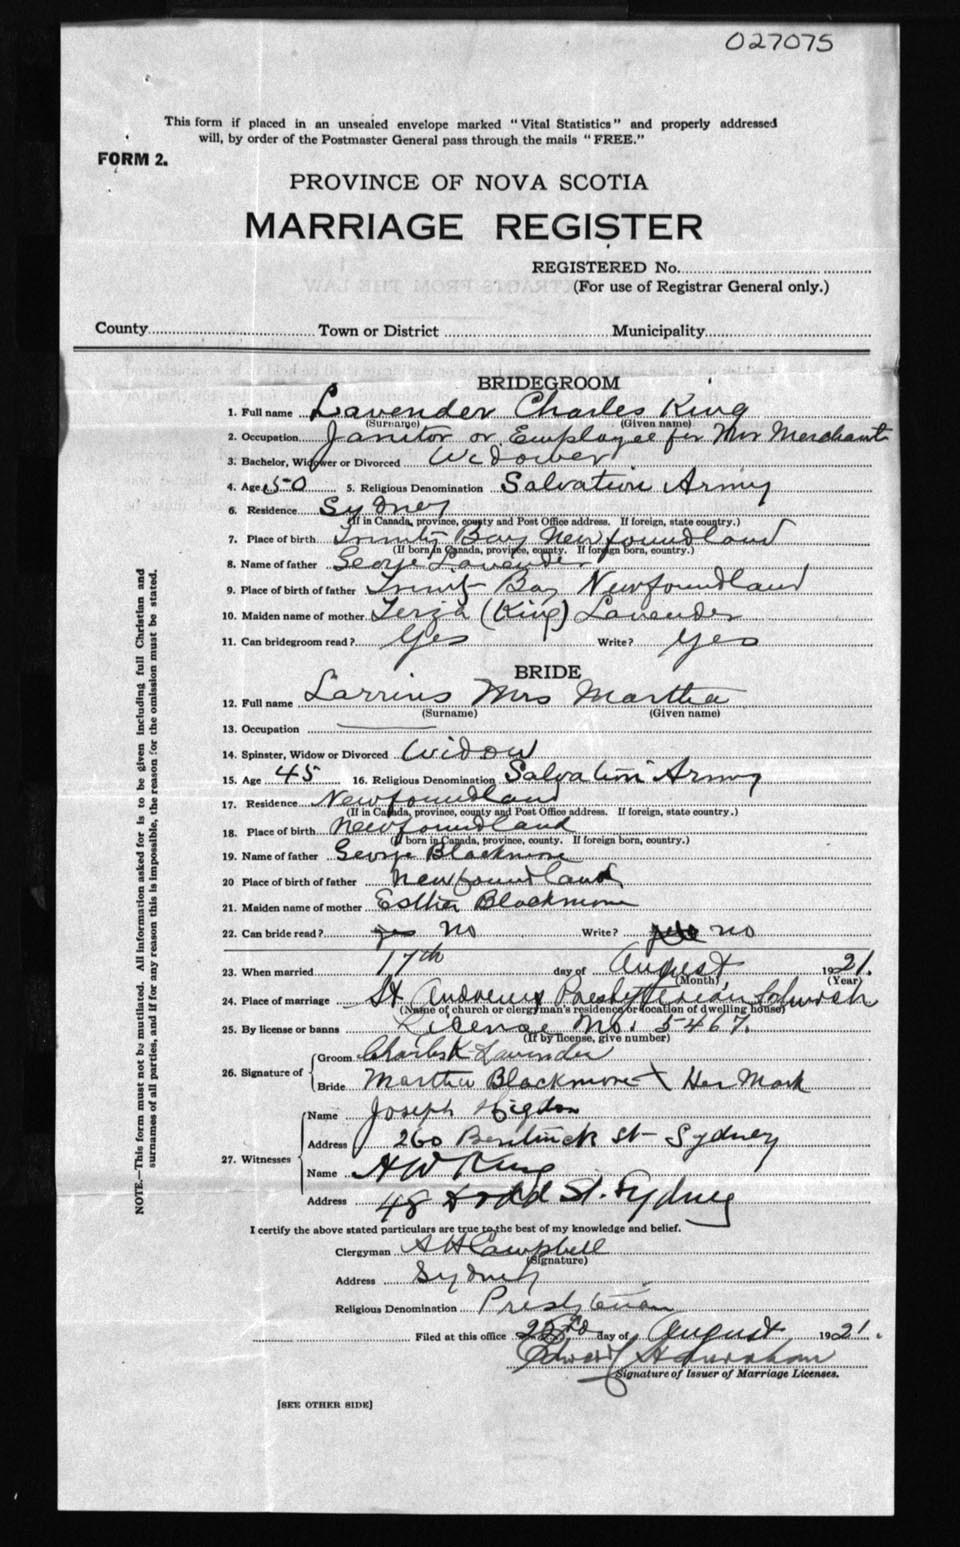 027075
This form if placed in an unsealed envelope marked "Vital Statistics" and properly addressed
will, by order of the Postmaster General pass through the mails "FREE."
FORM 2.
PROVINCE OF NOVA SCOTIA
MARRIAGE REGISTER
REGISTERED No.
(For use of Registrar General only.)
County Town or District Municipality
BRIDEGROOM
1. Full name Lavender Charles King
(Surname) (Given name)
2. Occupation Janitor or Employee for Merchant
3. Bachelor, Widower or Divorced Widower
4. Age 50 5. Religious Denomination Salvation Army
6. Residence Sydney
(If in Canada, province, county and Post Office address. If foreign, state country.)
7. Place of birth Trinity Bay Newfoundland
(If born in Canada, province, county. If foreign born, country.)
8. Name of father George Lavender
9. Place of birth of father Trinity Bay Newfoundland
10. Maiden name of mother Terza (King) Lavender
11. Can bridegroom read? Yes Write? Yes
BRIDE
12. Full name Mrs Martha
(Surname) (Given name)
13. Occupation
14. Spinster, Widow or Divorced Widow
15. Age 45 16. Religious Denomination Salvation Army
17. Residence Newfoundland
(If in Canada, province, county and Post Office address. If foreign, state country.)
18. Place of birth Newfoundland
(If born in Canada, province, county. If foreign born, country.)
19. Name of father George Blackmore
20 Place of birth of father Newfoundland
21. Maiden name of mother Esther Blackmore
22. Can bride read? yes no Write? no
23. When married 17th day of August 1921.
(Month) (Year)
24. Place of marriage St Andrews Presbyterian Church
(Name of church or clergyman's residence or location of dwelling house)
25. By license or banns License No. 5467.
(If by license, give number)
26. Signature of Groom Charles K Lavender
Bride Martha Blackmore X Her Mark
27. Witnesses Name Joseph Higdon
Address 260 Bentinck St Sydney
Name H W King
Address 48 Dodd St. Sydney
I certify the above stated particulars are true to the best of my knowledge and belief.
Clergyman A H Campbell
(Signature)
Address Sydney
Religious Denomination Presbyterian
Filed at this office 22nd day of August 1921.
Edward
Signature of Issuer of Marriage Licenses.
[SEE OTHER SIDE]
NOTE.—This form must not be mutilated. All information asked for is to be given including full Christian and
surnames of all parties, and if for any reason this is impossible, the reason for the omission must be stated.